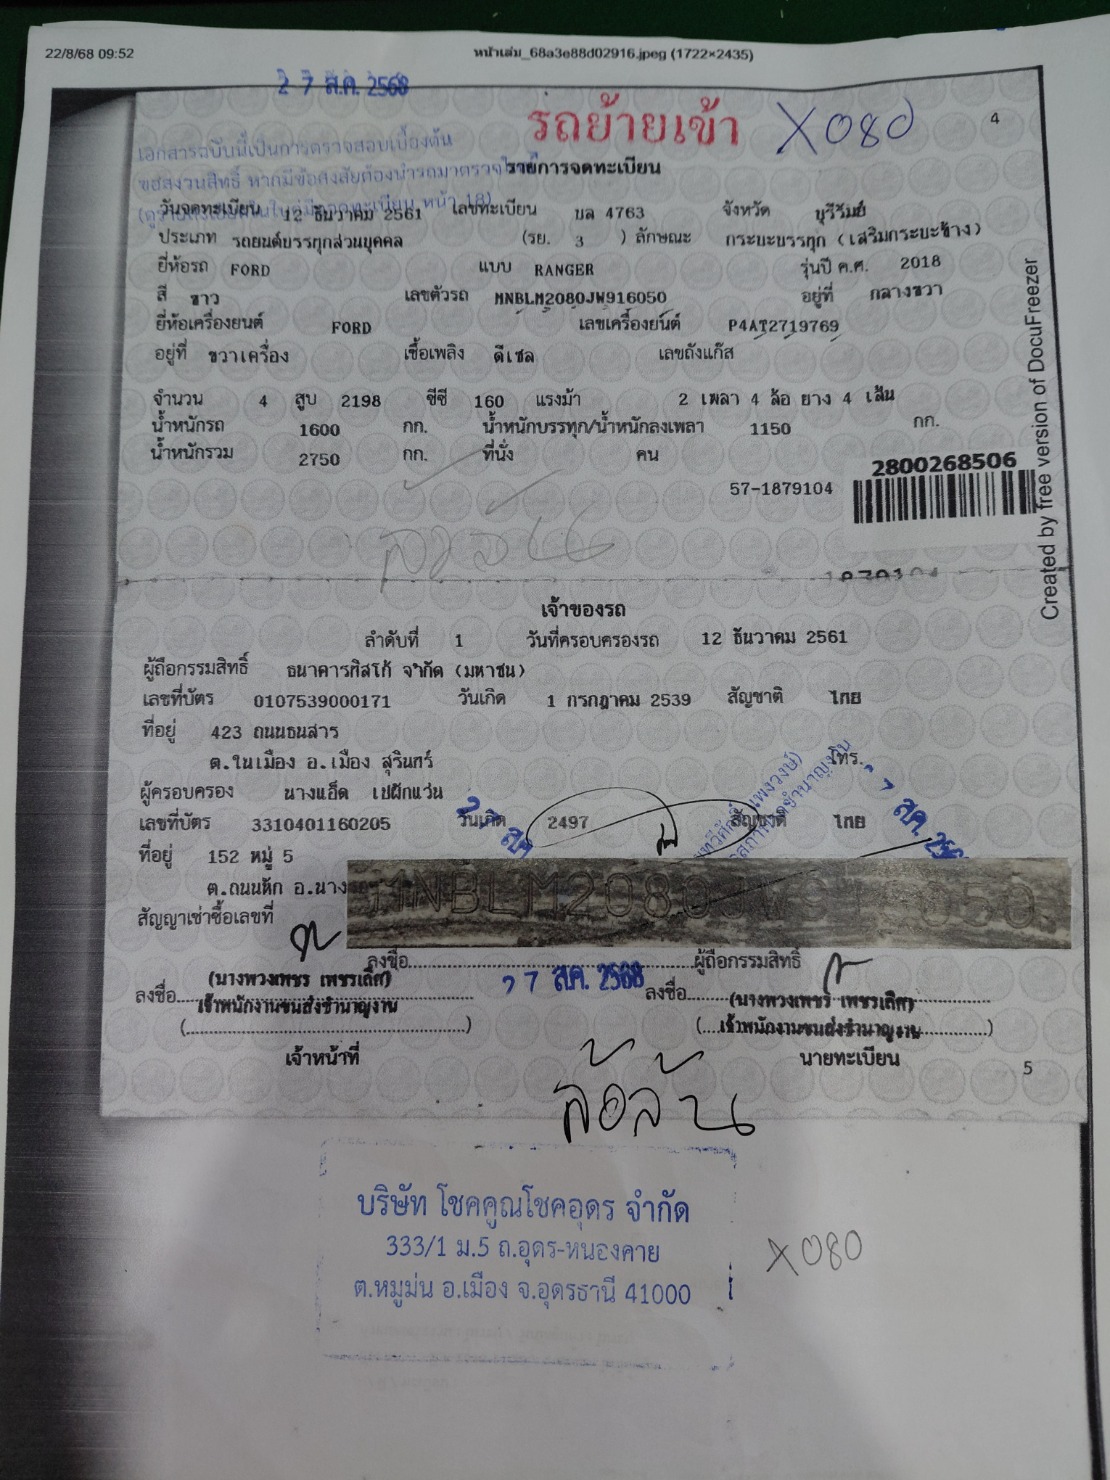 22/8/68 09:52
หน้าเล่ม_68a3e88d02916.jpeg (1722×2435)
27 ส.ค. 2568
รถย้ายเข้า X080
4
เอกสารฉบับนี้เป็นการตรวจสอบเบื้องต้น
ขอสงวนสิทธิ์ หากมีข้อสงสัยต้องนำรถมาตรวจ
รายการจดทะเบียน
วันจดทะเบียน 12 ธันวาคม 2561 เลขทะเบียน บล 4763 จังหวัด บุรีรัมย์
ประเภท รถยนต์บรรทุกส่วนบุคคล (รย. 3 ) ลักษณะ กระบะบรรทุก (เสริมกระบะข้าง)
ยี่ห้อรถ FORD แบบ RANGER รุ่นปี ค.ศ. 2018
สี ขาว เลขตัวรถ MNBLM2080JW916050 อยู่ที่ กลางขวา
ยี่ห้อเครื่องยนต์ FORD เลขเครื่องยนต์ P4AT2719769
อยู่ที่ ขวาเครื่อง เชื้อเพลิง ดีเซล เลขถังแก๊ส
จำนวน 4 สูบ 2198 ซีซี 160 แรงม้า 2 เพลา 4 ล้อ ยาง 4 เส้น
น้ำหนักรถ 1600 กก. น้ำหนักบรรทุก/น้ำหนักลงเพลา 1150 กก.
น้ำหนักรวม 2750 กก. ที่นั่ง คน
2800268506
57-1879104
Created by free version of DocuFreezer
ล้อล้น
เจ้าของรถ
ลำดับที่ 1 วันที่ครอบครองรถ 12 ธันวาคม 2561
ผู้ถือกรรมสิทธิ์ ธนาคารทิสโก้ จำกัด (มหาชน)
เลขที่บัตร 0107539000171 วันเกิด 1 กรกฎาคม 2539 สัญชาติ ไทย
ที่อยู่ 423 ถนนธนสาร
ต.ในเมือง อ.เมือง สุรินทร์ โทร.
ผู้ครอบครอง นางแอ็ด เปผักแว่น
เลขที่บัตร 3310401160205 วันเกิด 2497 สัญชาติ ไทย
ที่อยู่ 152 หมู่ 5
ต.ถนนหัก อ.นาง
MNBLM2080JW91 050
สัญญาเช่าซื้อเลขที่
ลงชื่อ ผู้ถือกรรมสิทธิ์
27 ส.ค. 2568
(นางพวงเพชร เพชรเลิศ) (นางพวงเพชร เพชรเลิศ)
ลงชื่อ เจ้าพนักงานขนส่งชำนาญงาน ลงชื่อ เจ้าพนักงานขนส่งชำนาญงาน
เจ้าหน้าที่ นายทะเบียน
5
ล้อล้น
บริษัท โชคคูณโชคอุดร จำกัด
333/1 ม.5 ถ.อุดร-หนองคาย
ต.หมูม่น อ.เมือง จ.อุดรธานี 41000
X080